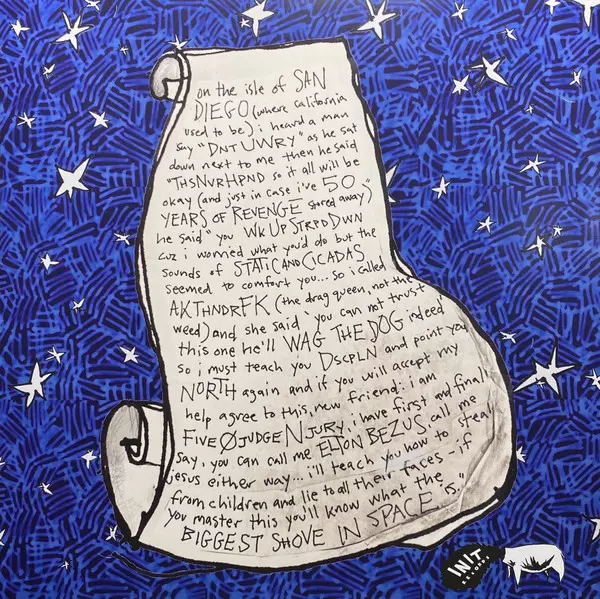 on the isle of SAN
DIEGO (where california
used to be) i heard a man
say "DNT UWRY" as he sat
down next to me then he said
"THSNVRHPND so it all will be
okay (and just in case i've 50
YEARS OF REVENGE stored away)"
he said "you WK UP STRPD DWN
cuz i worried what you'd do but the
sounds of STATIC AND CICADAS
seemed to comfort you... so i called
AKTHNDRFK (the drag queen, not the
weed) and she said "you can not trust
this one he'll WAG THE DOG indeed"
so i must teach you DSCPLN and point you
NORTH again and if you will accept my
help agree to this, new friend: i am
FIVE Ø JUDGE N JURY, i have first and final
say, you can call me ELTON BEZUS call me
jesus either way... i'll teach you how to steal
from children and lie to all their faces - if
you master this you'll know what the
BIGGEST SHOVE IN SPACE is."
INIT
RECORDS